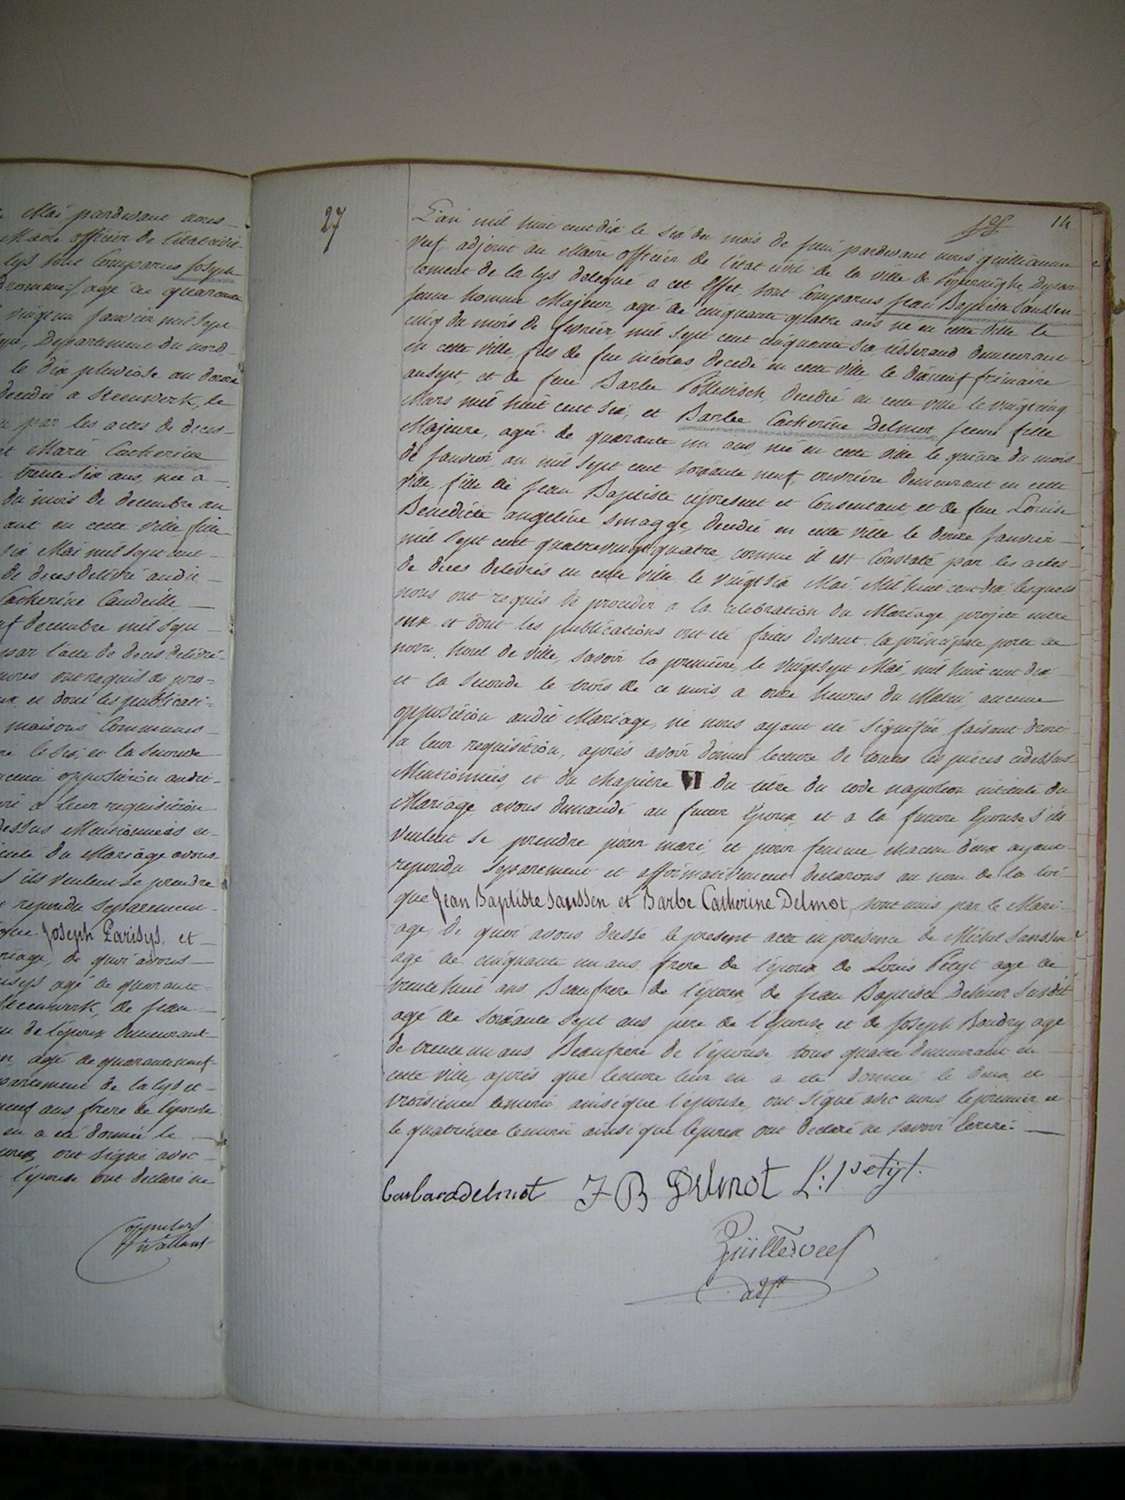 Mai pardevant nous
Maire officier de l'état civil
lys sont comparus Joseph
age de quarante
Janvier mil sept
Departement du nord
le dix pluviose an douze
decedée a Steenwerk, le
par les actes de deces
et Marie Catherine
trente six ans, née a
du mois de decembre an
ant en cette ville fille
dix Mai mil sept cent
de deces delivré audit
Catherine Caudeille
decembre mil sept
par l'acte de deces delivré
ont requis de pro-
et dont les publicati-
maisons Communes
le six, et la seconde
opposition audit
a leur requisition
dessus Mentionnées et
du Mariage avons
s'ils veulent se prendre
repondu separement
que Joseph Parisys, et
riage, de quoi avons
age de quarante
Steenwerk, de Jean
de l'epoux demeurant
age de quarante neuf
partement de la lys et
neuf ans frere de l'epouse
en a eté donnée le
ont signé avec
l'epouse ont declaré ne
27
14
L'an mil huit cent dix le six du mois de Juin pardevant nous guillaume
veuf adjoint au Maire officier de l'état civil de la ville de Poperinghe Depar-
tement de la lys delegué a cet effet sont Comparus Jean Baptiste Sanssen
jeune homme Majeur, agé de cinquante quatre ans né en cette ville le
cinq du mois de fevrier mil sept cent cinquante six, tisserand demeurant
en cette ville, fils de feu nicolas decedé en cette ville, le dixneuf frimaire
an sept, et de feue Barbe decedée en cette ville le vingt cinq
Mars mil huit cent six, et Barbe Catherine Delmot jeune fille
Majeure, agée de quarante un ans, née en cette ville le quinze du mois
de Janvier, an mil sept cent soixante neuf ouvrière demeurant en cette
ville, fille de Jean Baptiste ci present et Consentant, et de feue Louise
Benedicte angeline Smagge, decedée en cette ville le douze Janvier
mil sept cent quatrevingt quatre, comme il est Constaté par les actes
de deces delivrés en cette ville, le vingt six Mai Mil huit cent dix, lesquels
nous ont requis de proceder a la celebration du Mariage projeté entre
eux et dont les publications ont eté faites devant la principale porte de
notre hotel de ville, savoir la premiere, le vingt sept Mai, mil huit cent dix
et la seconde le trois de ce mois a onze heures du Matin, aucune
opposition audit Mariage, ne nous ayant eté signifiée, faisant droit
a leur requisition, après avoir donné lecture de toutes les pièces cidessus
Mentionnées, et du chapitre VI du titre du code napoleon intitulé du
Mariage avons demandé au futur Epoux, et a la future Epouse, s'ils
veulent se prendre pour mari et pour femme, chacun d'eux ayant
repondu separement et affirmativement declarons au nom de la loi
que Jean Baptiste Sanssen, et Barbe Catherine Delmot, sont unis par le Mari-
age, de quoi avons dressé le present acte en presence de Michel Sanssen
age de cinquante un ans, frere de l'epoux de Louis Petyt age de
trente huit ans Beaufrere de l'epoux, de Jean Baptiste Delmot susdit
age de soixante sept ans pere de l'epouse, et de Joseph Boudry age
de trente un ans Beaufrere de l'epouse tous quatre demeurant en
cette ville, après que lecture leur en a eté donnée le deux, et
troisieme temoin ainsi que l'epouse, ont signé avec nous le premier et
le quatrieme temoin ainsi que l'epoux ont declaré ne savoir Ecrire.
barbara delmot J B Delmot L: Petyt.
Guille Veuf
adjt